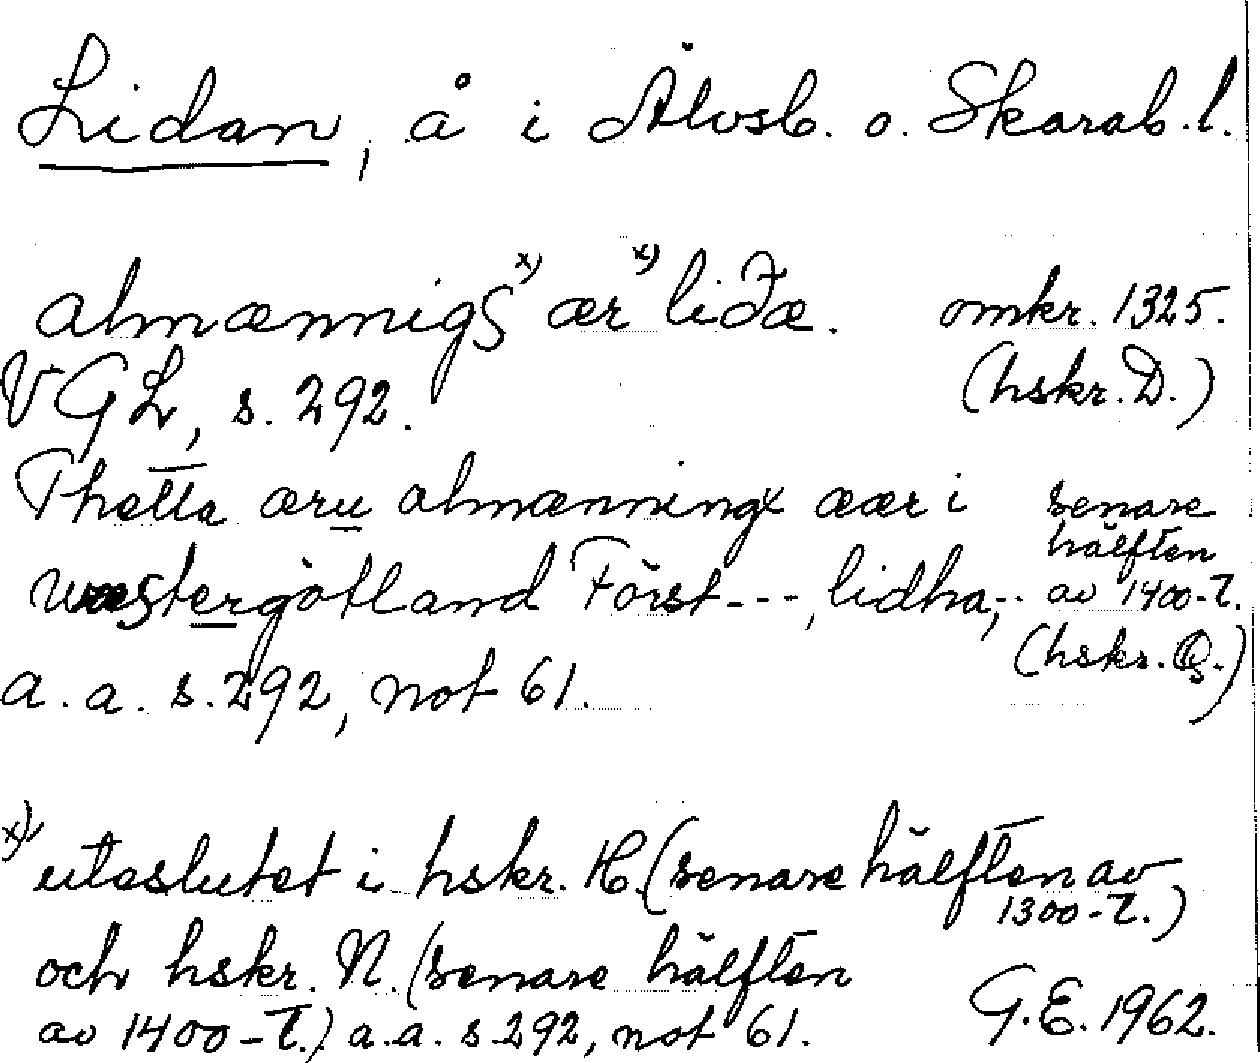 Lidan, å i Älvsb. o. Skarab. l.
almænnigS x) ær x) liðæ. omkr. 1325.
VGL, s. 292. (hskr. D.)
Thetta æru almænningx æær i senare
hälften
wæstergötland Först ---, lidha, -- av 1400-t.
(hskr. Q.)
a. a. s. 292, not 61.
x) uteslutet i hskr. H. (senare hälften av
1300-t.)
och hskr. N. (senare hälften
av 1400-t.) a. a. s. 292, not 61. G.E. 1962.